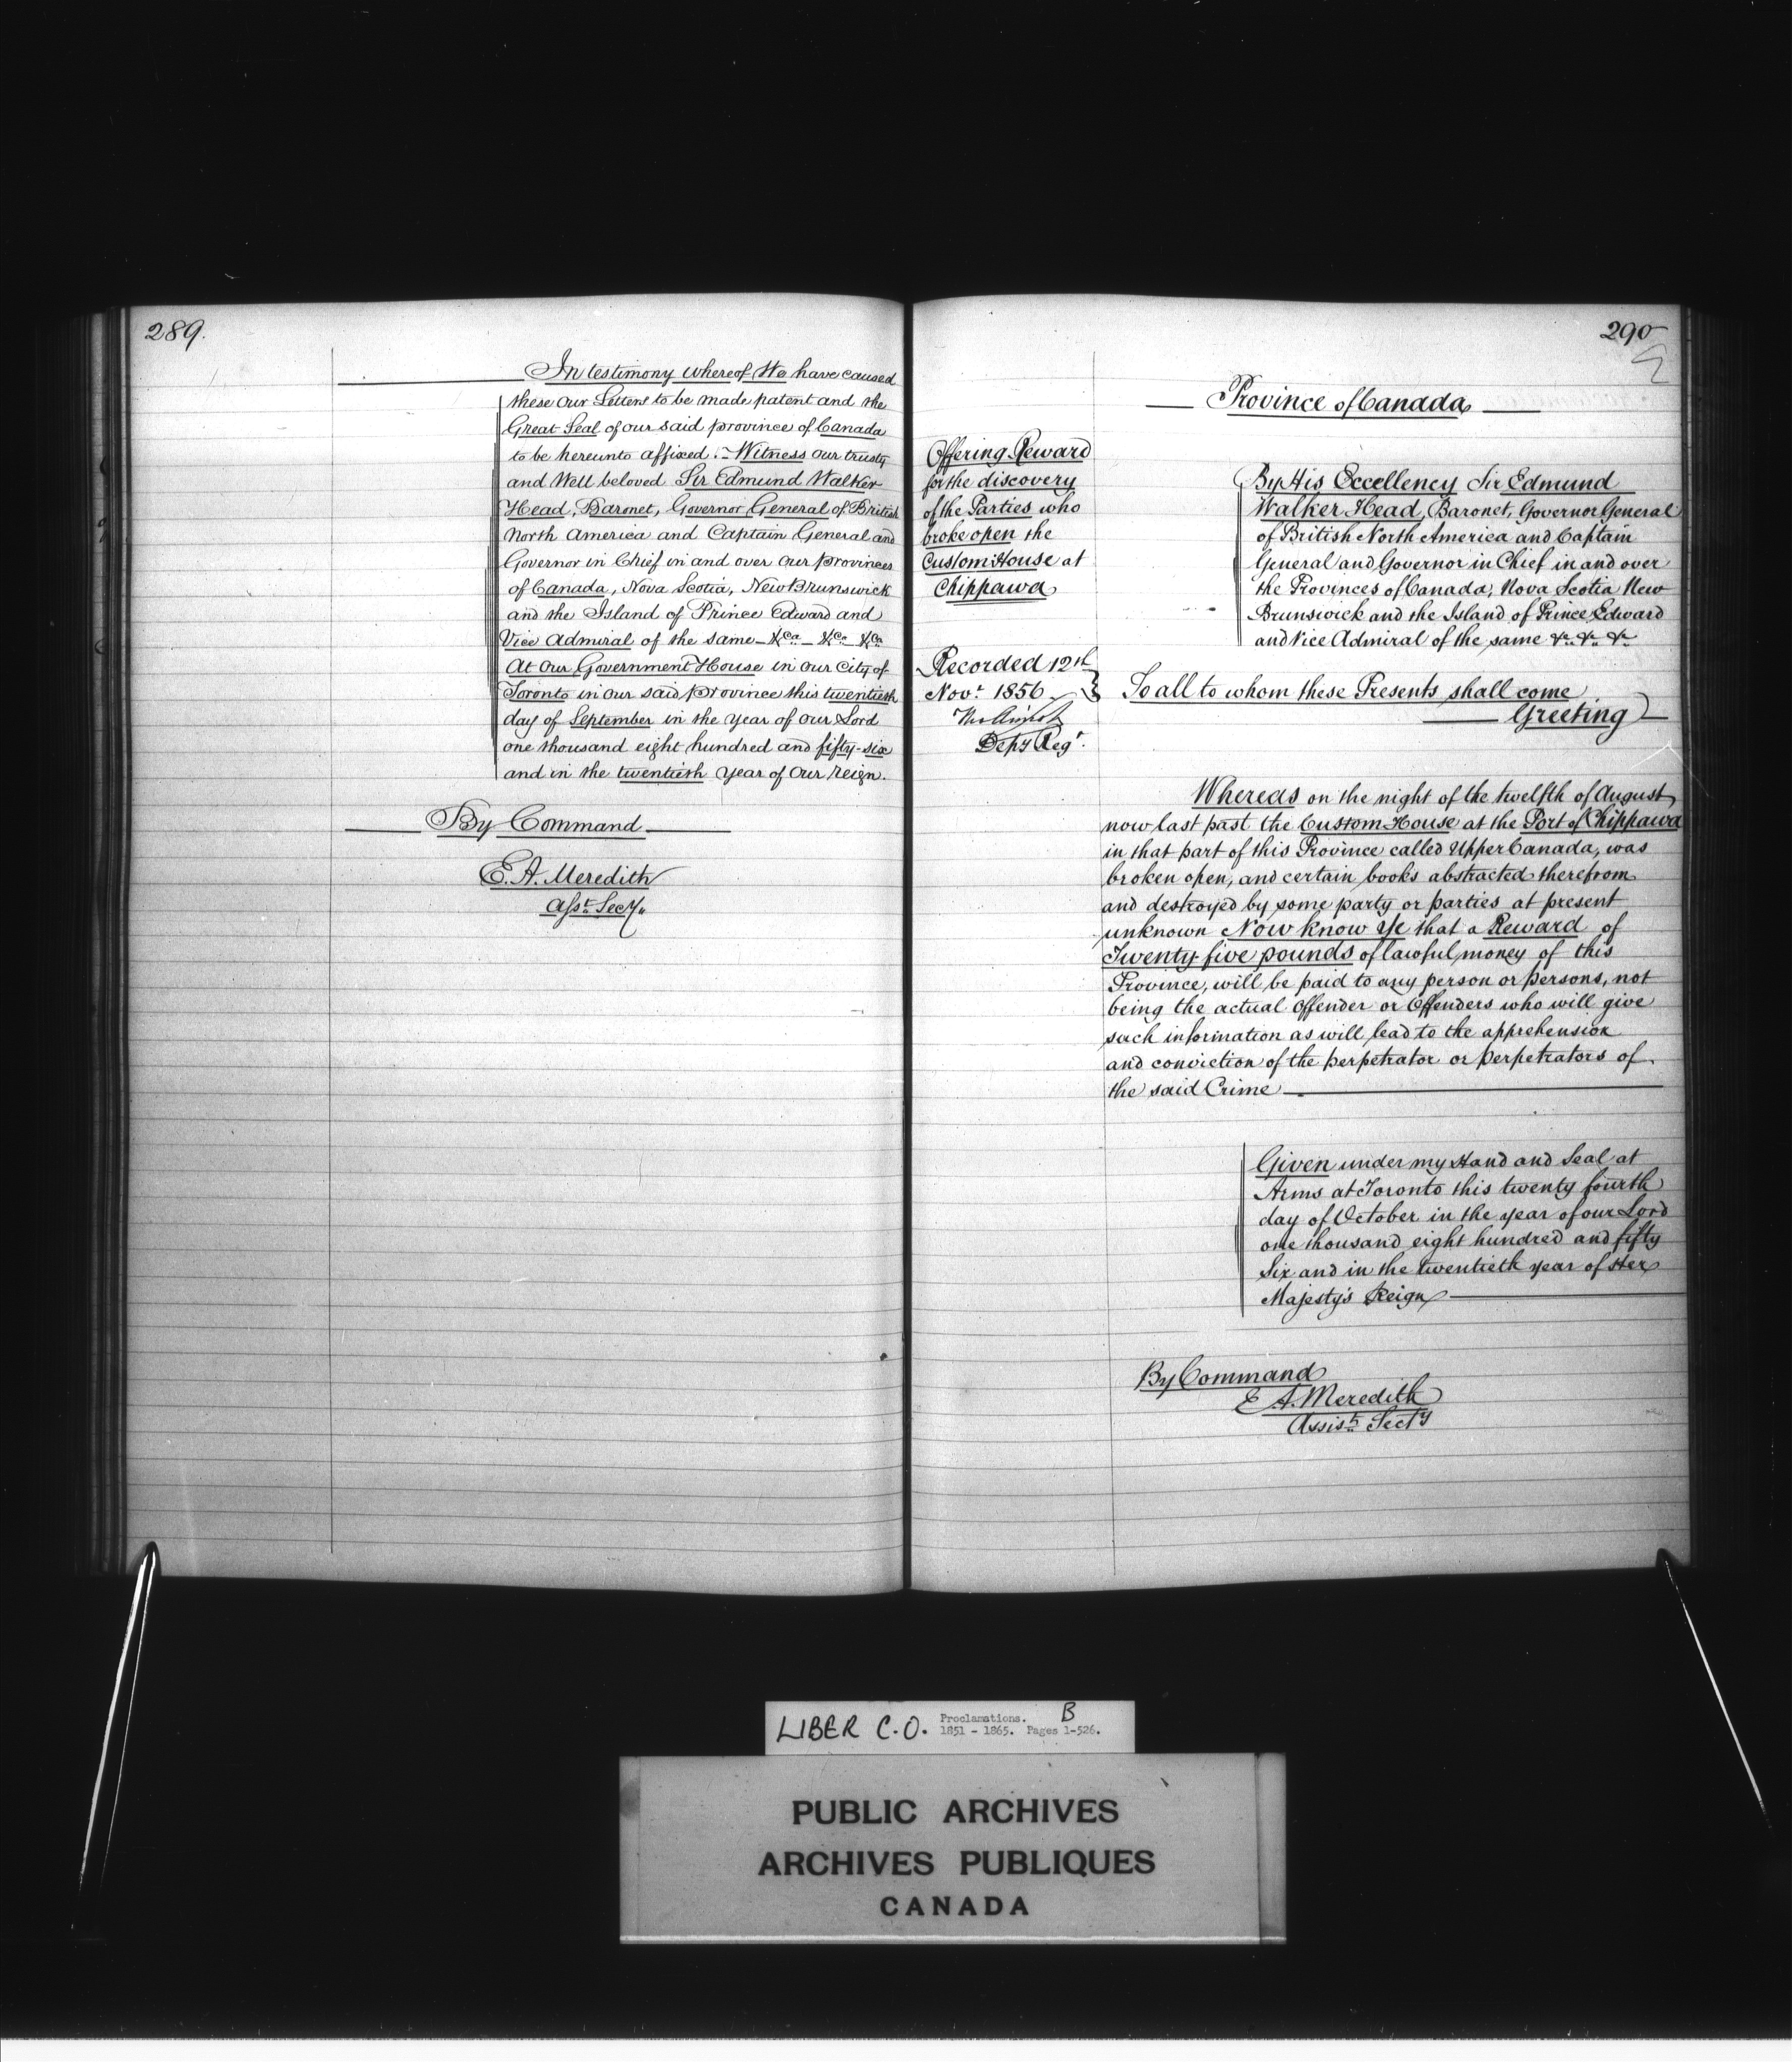 289.
In testimony whereof We have caused
these our Letters to be made patent and the
Great Seal of our said province of Canada
to be hereunto affixed. - Witness our trusty
and Well beloved Sir Edmund Walker
Head, Baronet, Governor General of British
North America and Captain General and
Governor in Chief in and over our provinces
of Canada, Nova Scotia, New Brunswick
and the Island of Prince Edward and
Vice Admiral of the same - &ca - &ca &ca
At Our Government House in our City of
Toronto in our said province this twentieth
day of September in the year of our Lord
one thousand eight hundred and fifty-six
and in the twentieth year of our reign.
By Command
E. A. Meredith
Asst. Secy.
290
Province of Canada
Offering Reward
for the discovery
of the Parties who
broke open the
Custom House at
Chippawa
Recorded 12th
Novr. 1856
Depy Regr.
By His Excellency Sir Edmund
Walker Head, Baronet, Governor General
of British North America and Captain
General and Governor in Chief in and over
the Provinces of Canada, Nova Scotia New
Brunswick and the Island of Prince Edward
and Vice Admiral of the same &c. &c. &c.
To all to whom these Presents shall come
Greeting
Whereas on the night of the twelfth of August
now last past the Custom House at the Port of Chippawa
in that part of this Province called Upper Canada, was
broken open, and certain books abstracted therefrom
and destroyed by some party or parties at present
unknown Now know Ye that a Reward of
Twenty five pounds of lawful money of this
Province, will be paid to any person or persons, not
being the actual Offender or Offenders who will give
such information as will lead to the apprehension
and conviction of the perpetrator or perpetrators of
the said Crime
Given under my Hand and Seal at
Arms at Toronto this twenty fourth
day of October in the year of our Lord
one thousand eight hundred and fifty
Six and in the twentieth year of Her
Majesty's Reign
By Command
E A. Meredith
Assist. Secty
LIBER C.O. Proclamations. B
1851 - 1865. Pages 1-526.
PUBLIC ARCHIVES
ARCHIVES PUBLIQUES
CANADA